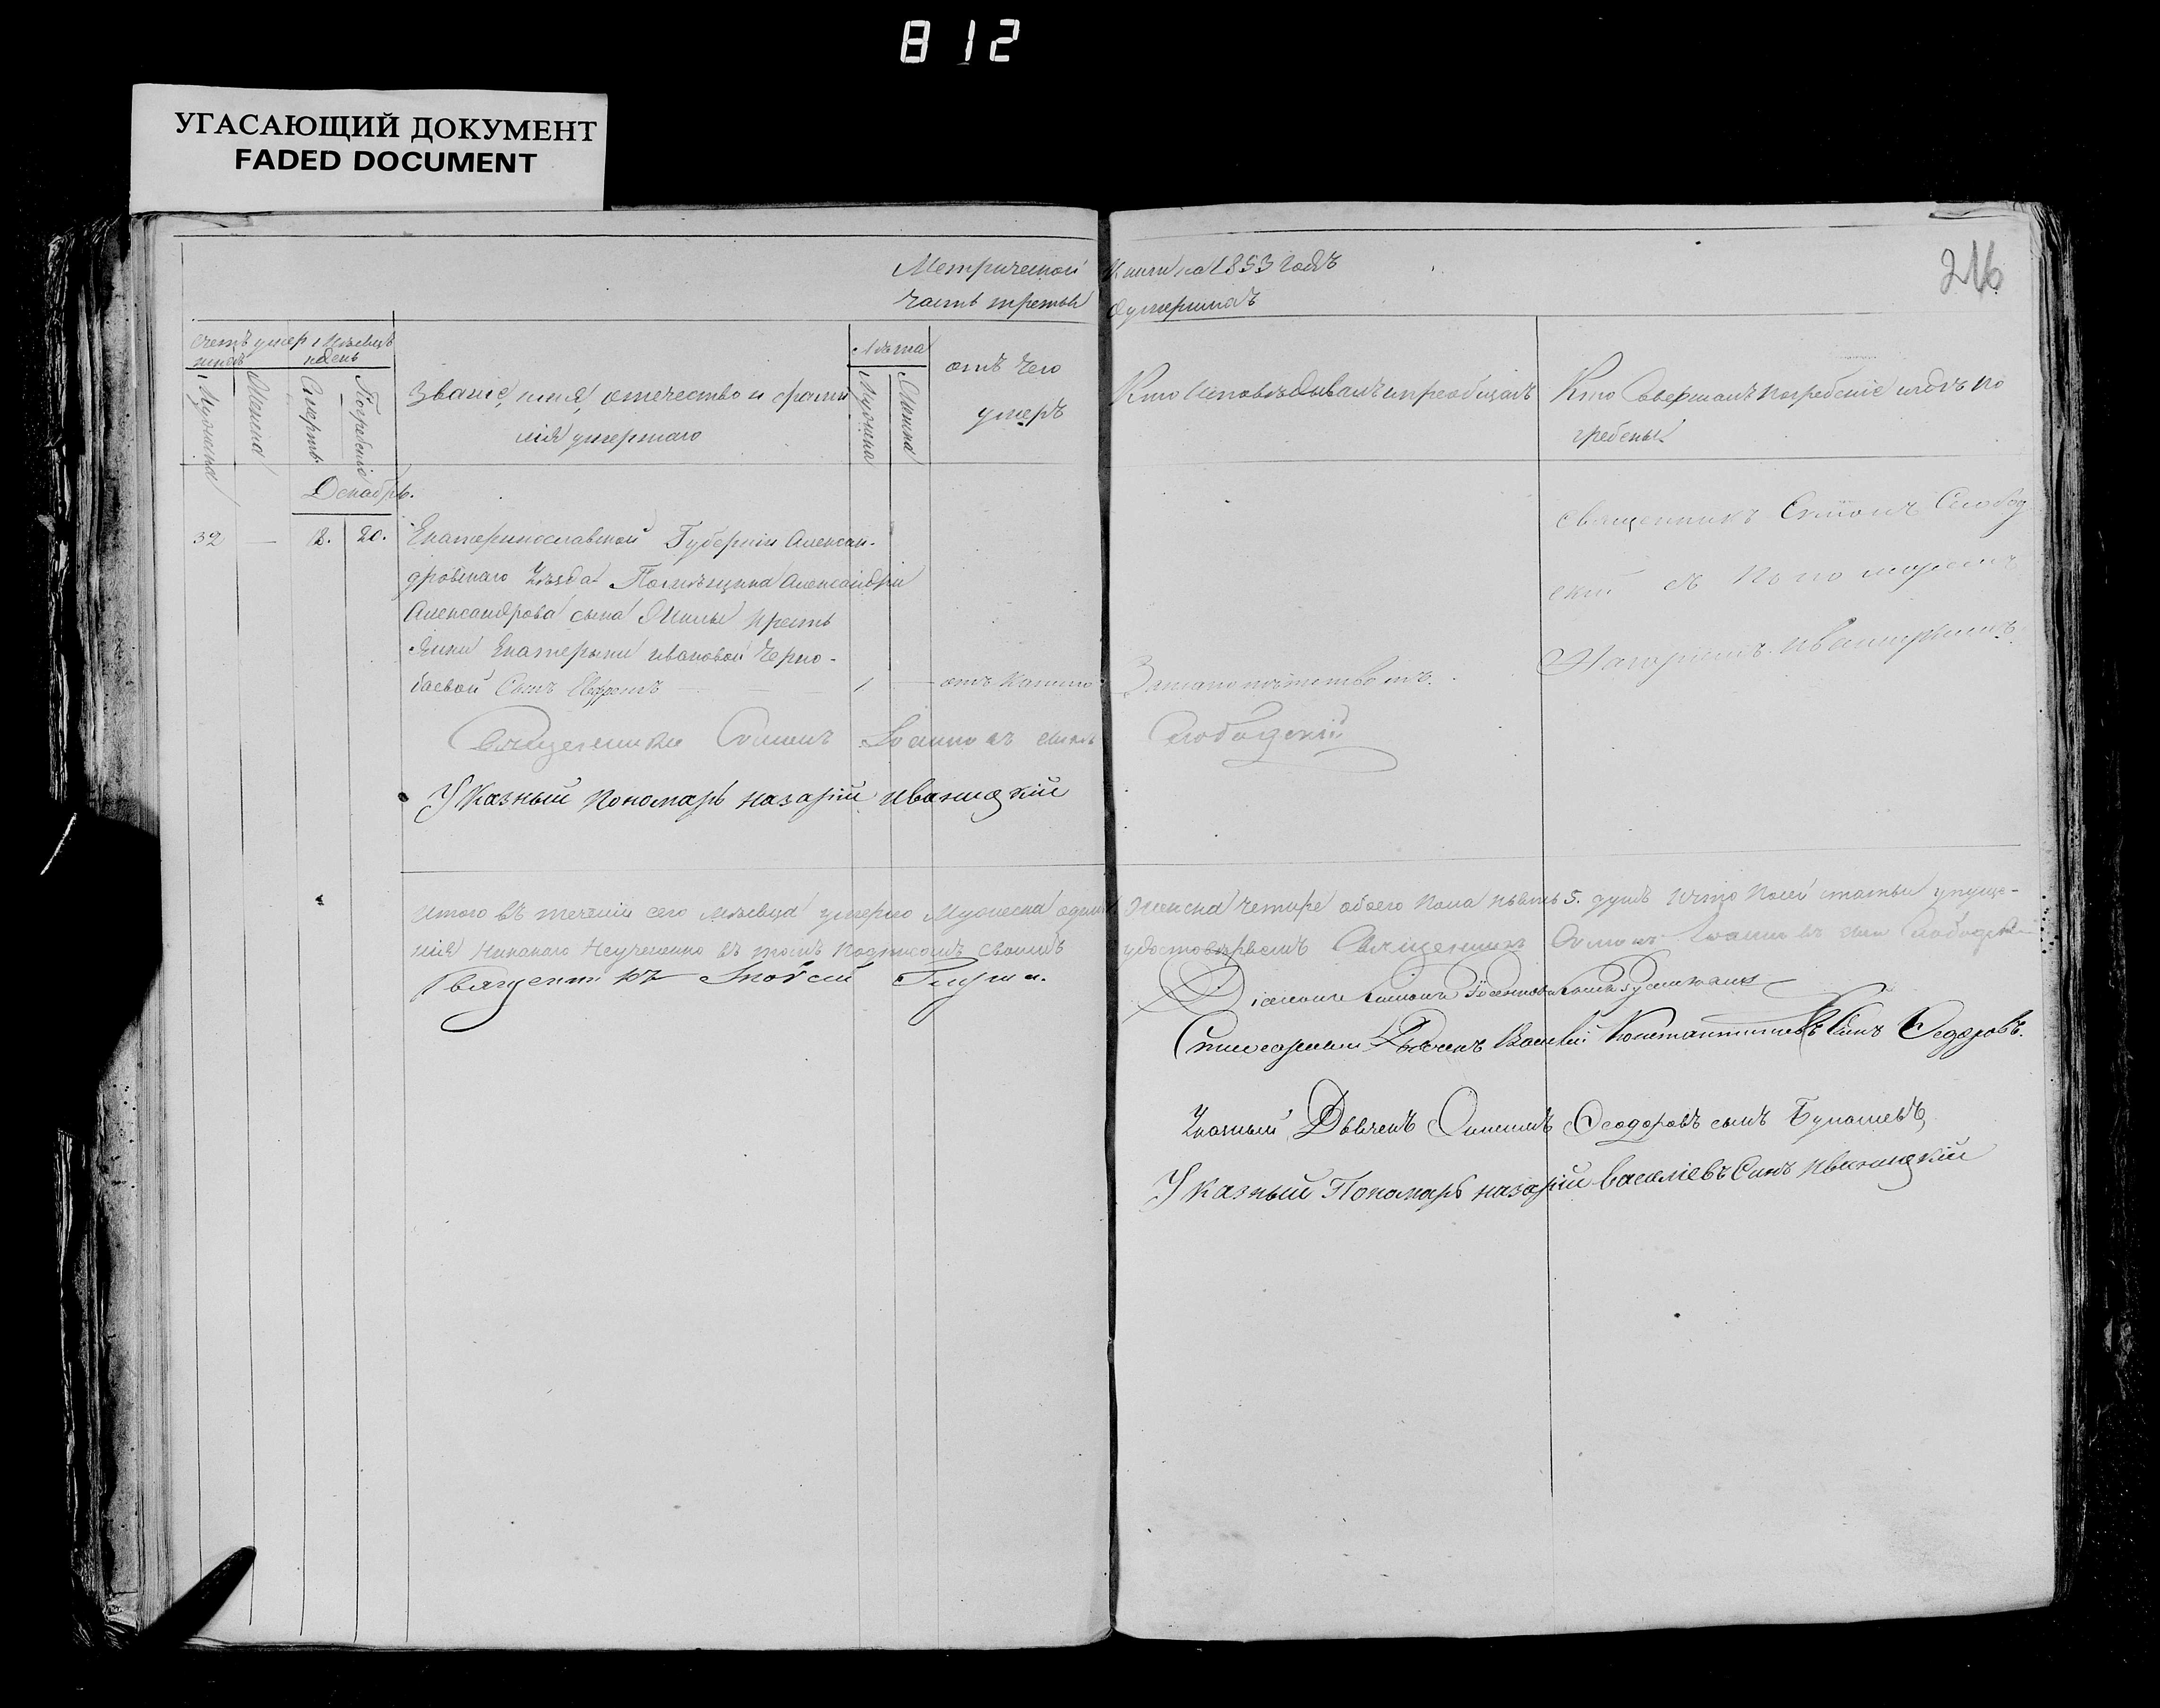 812
УГАСАЮЩИЙ ДОКУМЕНТ
FADED DOCUMENT
216
Метрической Книги на 1853 годъ
часть третья о умершихъ
Счетъ умершихъ
Мѣсяцъ и день
Мужеска
Женска
Смерть
Погребеніе
Званіе, имя, отечество и фамилія умершаго
Лѣта
Мужеска
Женска
отъ чего умеръ
Кто Исповѣдывалъ и пріобщалъ
Кто Совершалъ погребеніе и гдѣ погребены
Декабрь.
32 — 18. 20.
Екатеринославской Губерніи Алексан-
дровскаго Уѣзда Помѣщика Александри
Александрова сына крестья
Екатерыни Ивановой Черно-
баевой Сынъ
1 — отъ
Священникъ Слобод
скій съ Пономаремъ
Назаріемъ
Священникъ Іоанновъ сынъ Слободскій
Указный пономарь назарій иваницкій
Итого въ теченіи сего мѣсяца умерло Мужеска одинъ Женска четыре обоего пола пять 5. душъ и что по сей статьи упуще-
нія Никакого Неучиненно въ томъ подписомъ своимъ удостовѣряемъ Священникъ Іоанновъ сынъ Слободскій
Священникъ
Діаконъ
Дьячекъ Василій Константиновъ Сынъ Федоровъ.
Указный Дьячекъ Феодоровъ сынъ
Указный Пономарь назарій василіевъ Синъ иваницкій